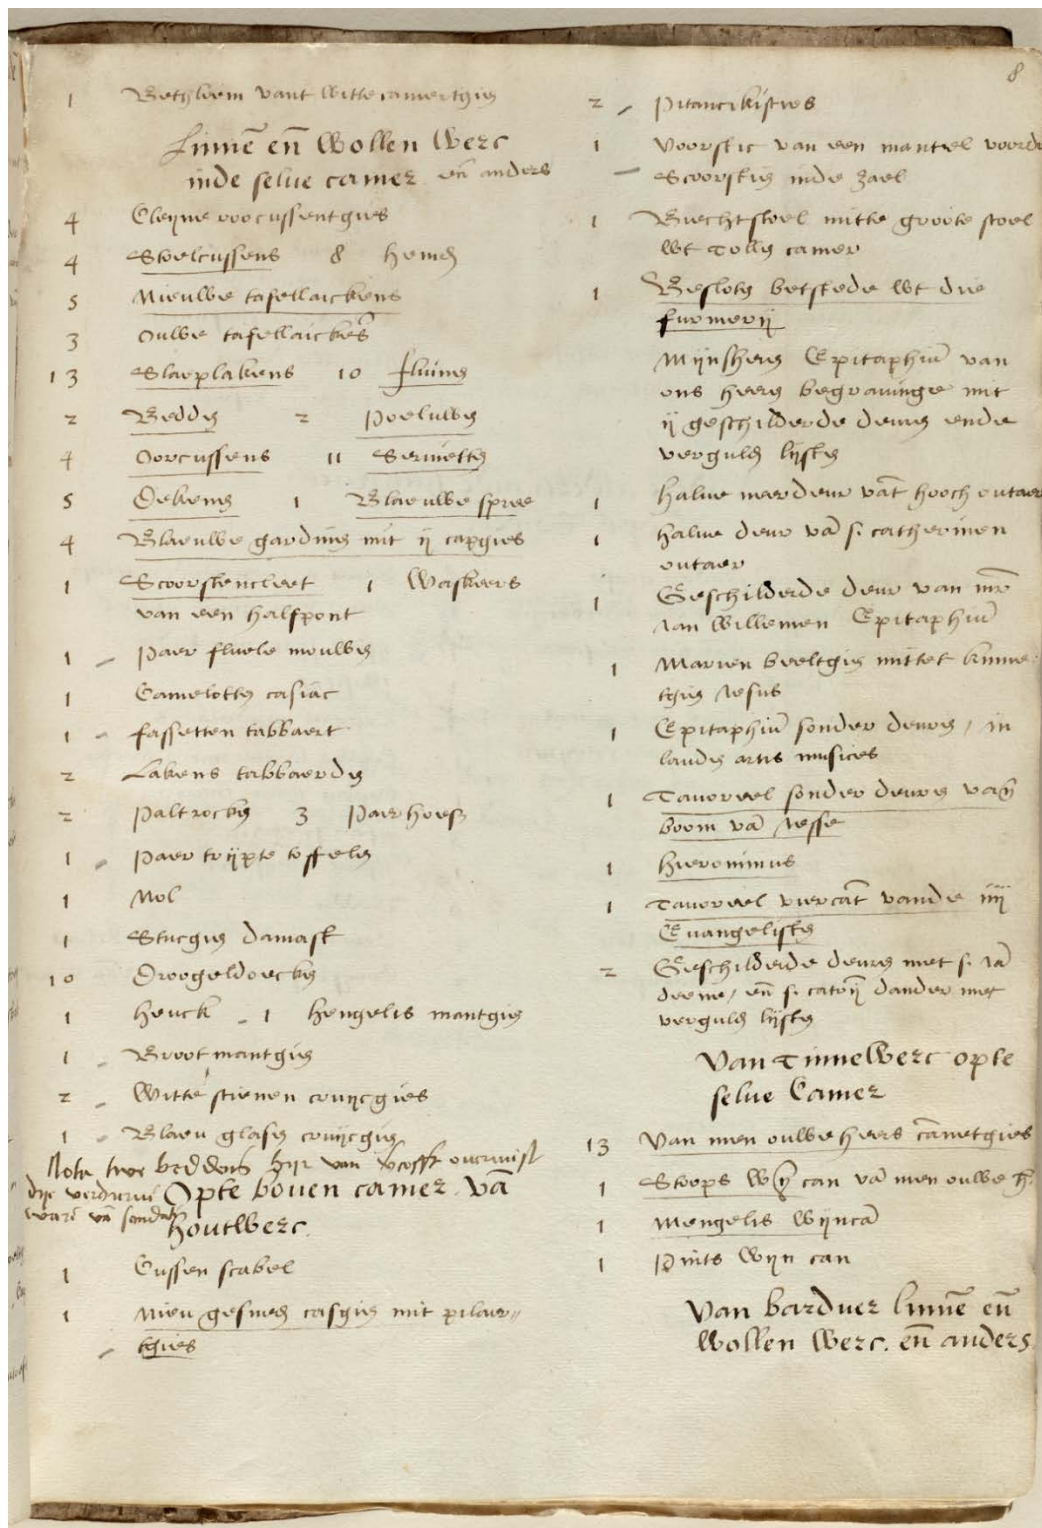 8
1 Bethleem vant witte camertgin
Linnē eñ wollen werc
inde selue camer eñ anders
4 Cleyne oorcussentgies
4 Stoelcussens 8 hemdn
5 Nieuwe tafellaickens
3 Oulwe tafellaickēs
13 Slaeplakens 10 fluinen
2 Bedden 2 poeluwen
4 Oorcussens 11 Servietten
5 Dekens 1 Blaeuwe spree
4 Blaeuwe gardinen mit ij capgies
1 Scoorstencleet 1 waskeers
van een halfpont
1 Paer fluele mouwen
1 Camelotten casiac
1 fassetten tabbaert
2 Lakens tabbaerden
2 Paltrocken 3 Paer hoesen
1 Paer trijpte toffelen
1 Mol
1 Stucgin damast
10 Droogeldoecken
1 heuck 1 hengelis mantgin
1 Broot mantgin
2 Witte stienen cruijcgies
1 Blaeu glasen cruijcgin
Nota twe beddens hyr van
Opte bouen camer vā
houtwerc.
1 Cussen scabel
1 Nieu gesneden casgin mit pilaer"
tgies
2 Pitancikisties
1 Voorstic van een mantel voorde
Scoorstien inde zael
1 Biechtstoel mitte groote stoel
wt Tollen camer
1 Besloten betstede wt die
furmerij
Mijnsheren Epitaphiū van
ons heeren begrauinge mit
ij geschilderde deuren ende
verguld lijsten
1 halue neerdeur vāt hooch outaer
1 halue deur vā s. catherinen
outaer
1 Geschilderde deur van mr
Jan Willemen Epitaphiū
1 Marien beeltgin mittet kinne
tgin Jesus
1 Epitaphiū sonder deuren, in
laudem artis musices
1 Tauereel sonder deuren vanden
boom vā Jesse
1 hieronimus
1 Tauereel viercāt vande iiij
Euangelisten
2 Geschilderde deuren met s. Jā
deene, eñ s. catrij dander met
verguld lijsten
Van Tinnewerc opte
selue Camer
13 Van men oulwe heers cāmetgies
1 Stoops wyn can vā men oulwe h.
1 Mengelis wijncā
1 Pints wyn can
Van barduer linnē eñ
wollen werc. eñ anders